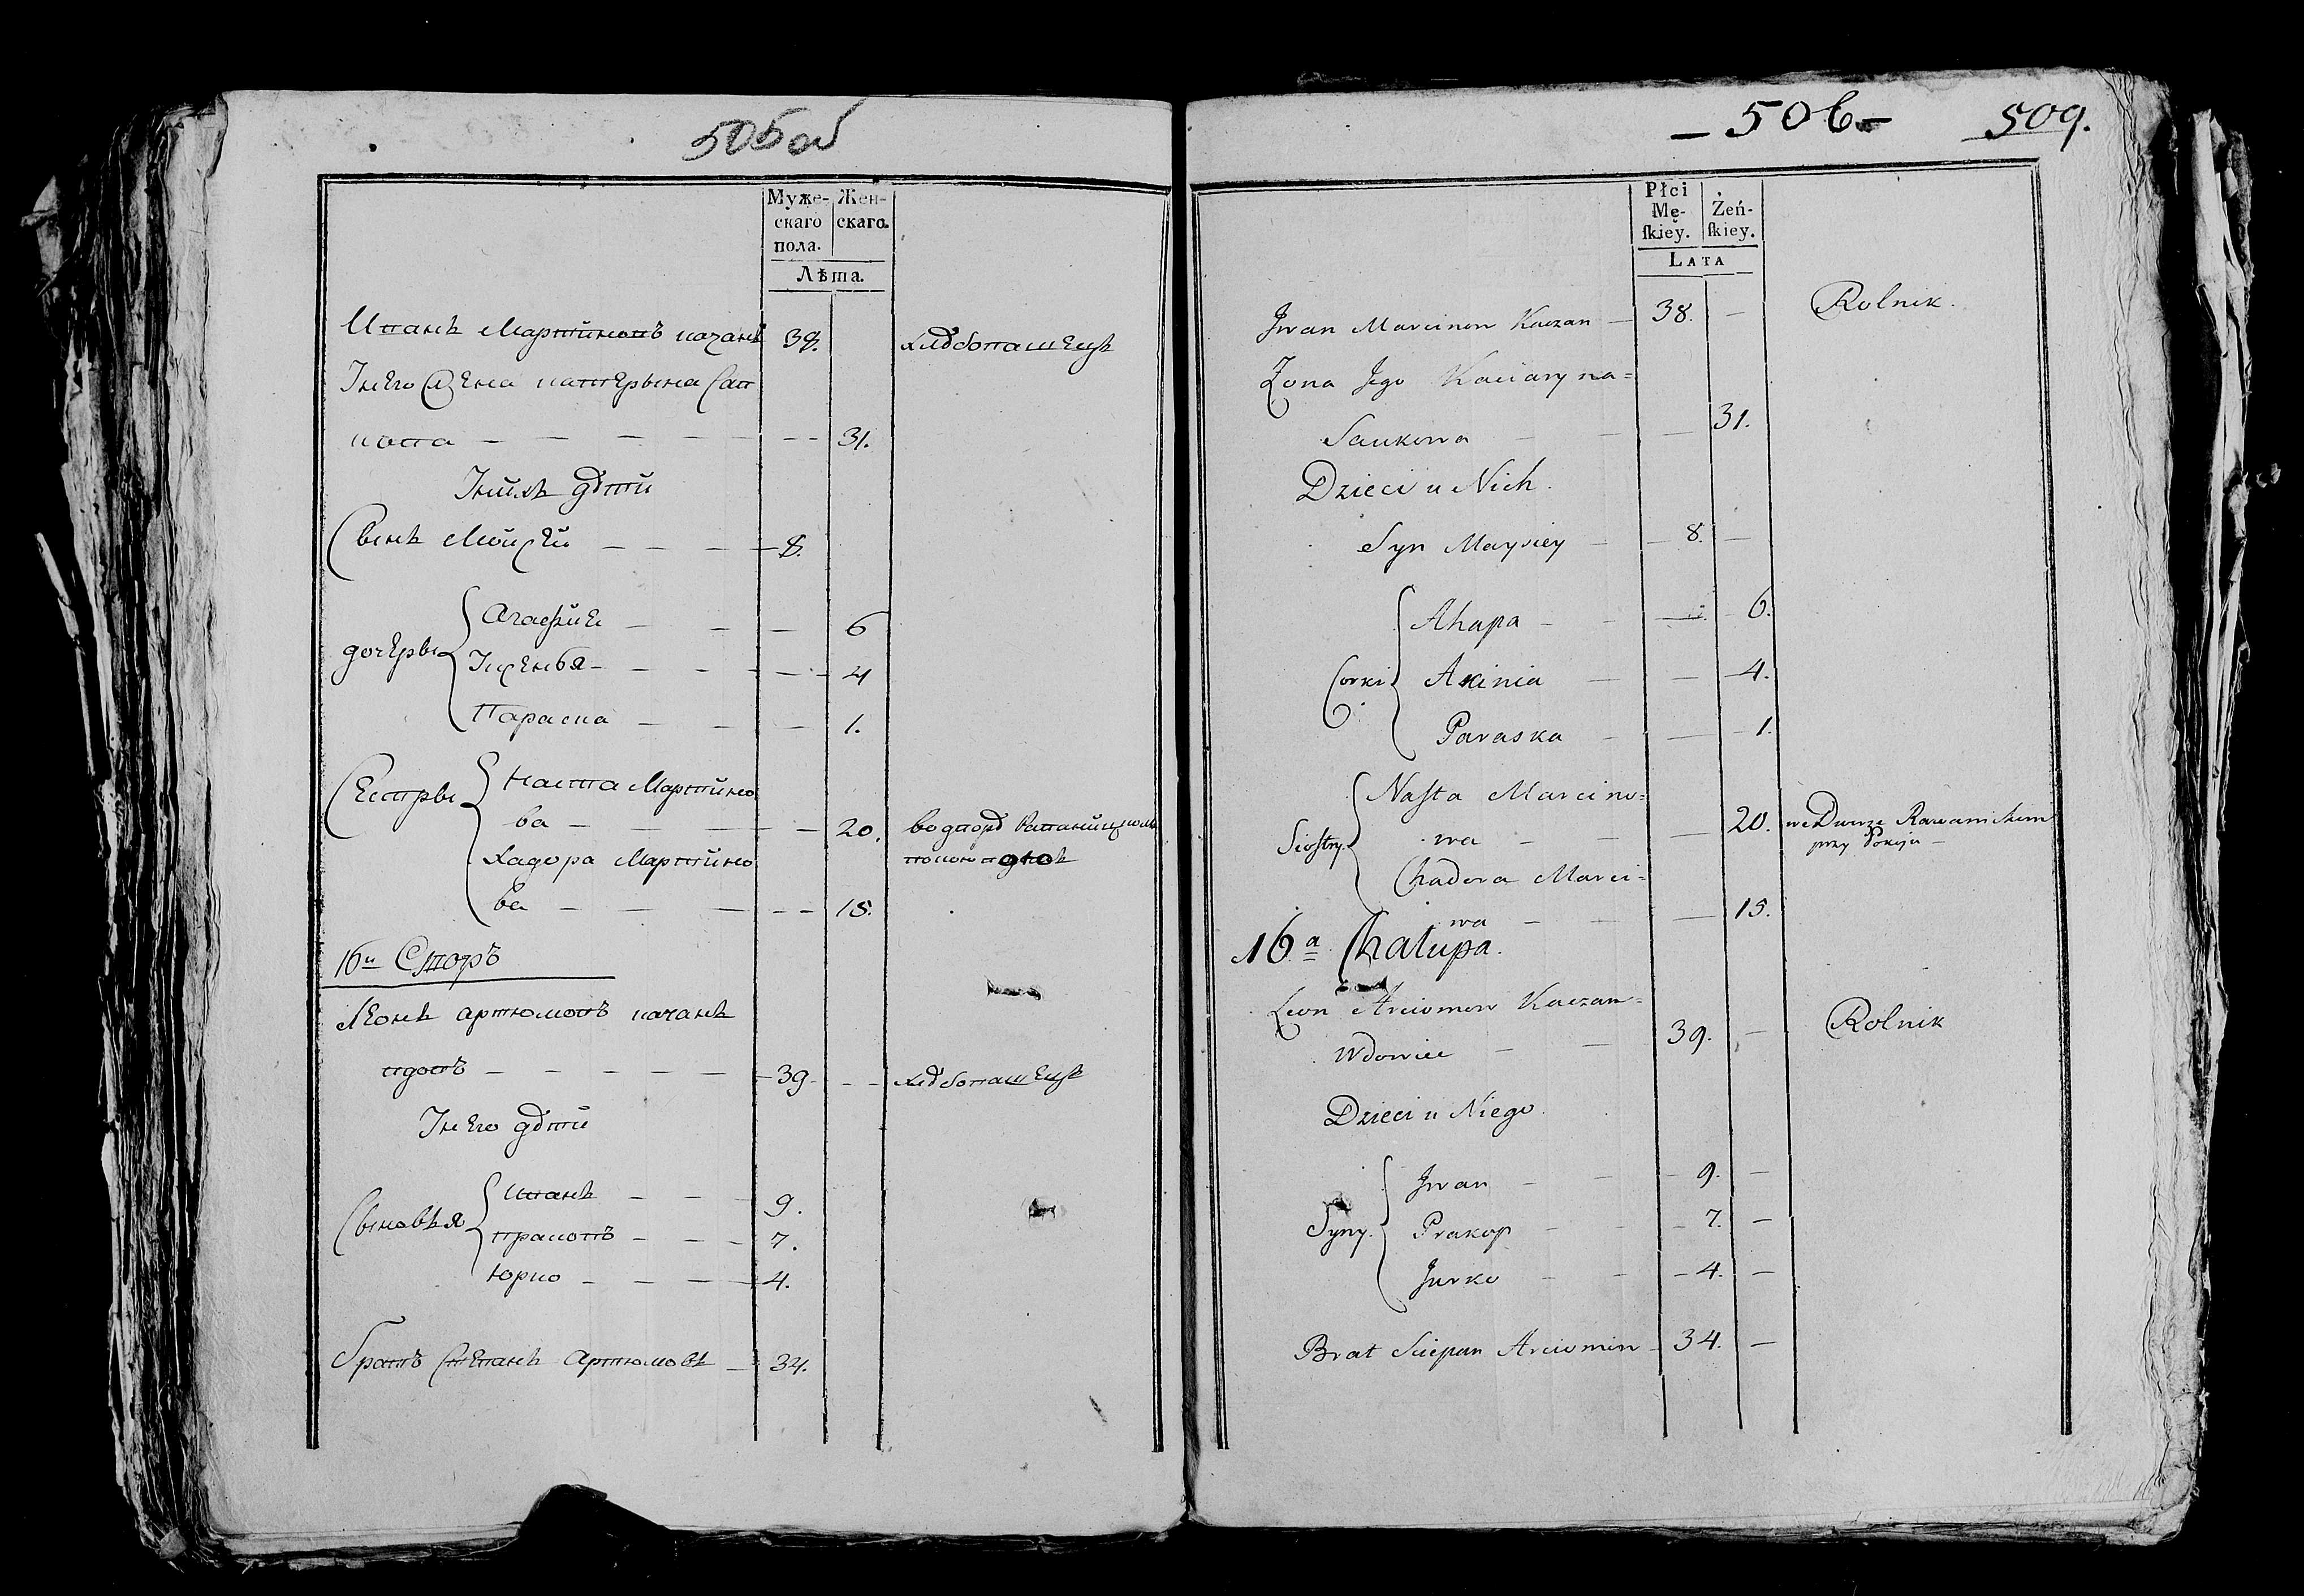 505 об
Муже-
скаго
пола.
Жен-
скаго.
Лѣта.
Иванъ Мартиновъ качанъ 38. хлѣбопашецъ
Унего жена катерына Сав
кова — — — — — 31.
Унихъ дѣти
Сынъ Мойсей — — — 8.
дочеры
Агафие — — — 6
Ксенья — — — 4
Параска — — — 1.
Сестры
Наста Мартино
ва — — — 20.
Хадора Мартино
ва — — — 15.
16й Сторъ
Леонъ артюмовъ качанъ
вдовъ — — — — — 39 — — хлѣбопашецъ
Унего дѣти
Сыновья
Иванъ — — 9.
пракопъ — — — 7.
юрко — — — 4.
братъ Степанъ Артюмовъ — 34.
— 506 — 509.
Płci
Mę-
skiey.
Żeń-
skiey.
Lata
Jwan Marcinow Kaczan — 38. — Rolnik.
Zona Jego Kaciaryna=
Saukowa — — — 31.
Dzieci u Nich.
Syn Maysiey — — 8. —
Corki
Ahapa — — — 6.
Axinia — — 4.
Paraska — — 1.
Siostry
Nasta Marcino=
wa — — — 20. we Dworze Rawanickim
przy
Chadora Marci=
wa — — — 15.
16a Chałupa.
Leon Arciomow Kaczan=
Wdowiec — — 39. — Rolnik
Dzieci u Niego.
Syny
Jwan — — — 9. —
Prakop — — 7. —
Jurko — — — 4. —
Brat Sciepan Arciomin — 34. —